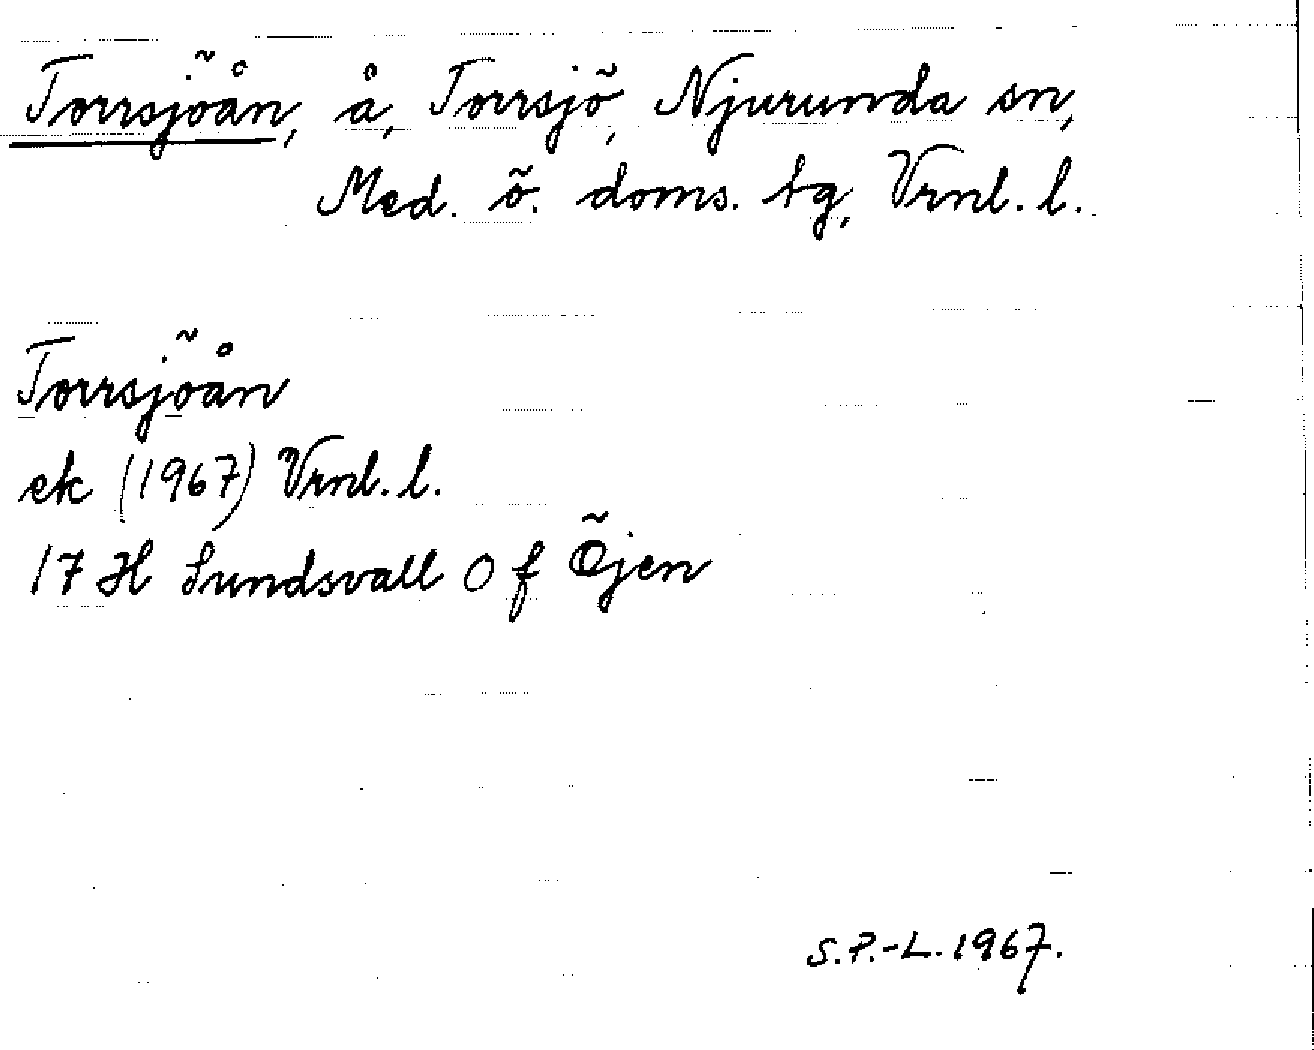 Torrsjöån, å, Torrsjö, Njurunda sn,
Med. ö. doms. tg, Vrnl. l.
Torrsjöån
ek (1967) Vrnl. l.
17 H Sundsvall O f Öjen
S.P.-L. 1967.